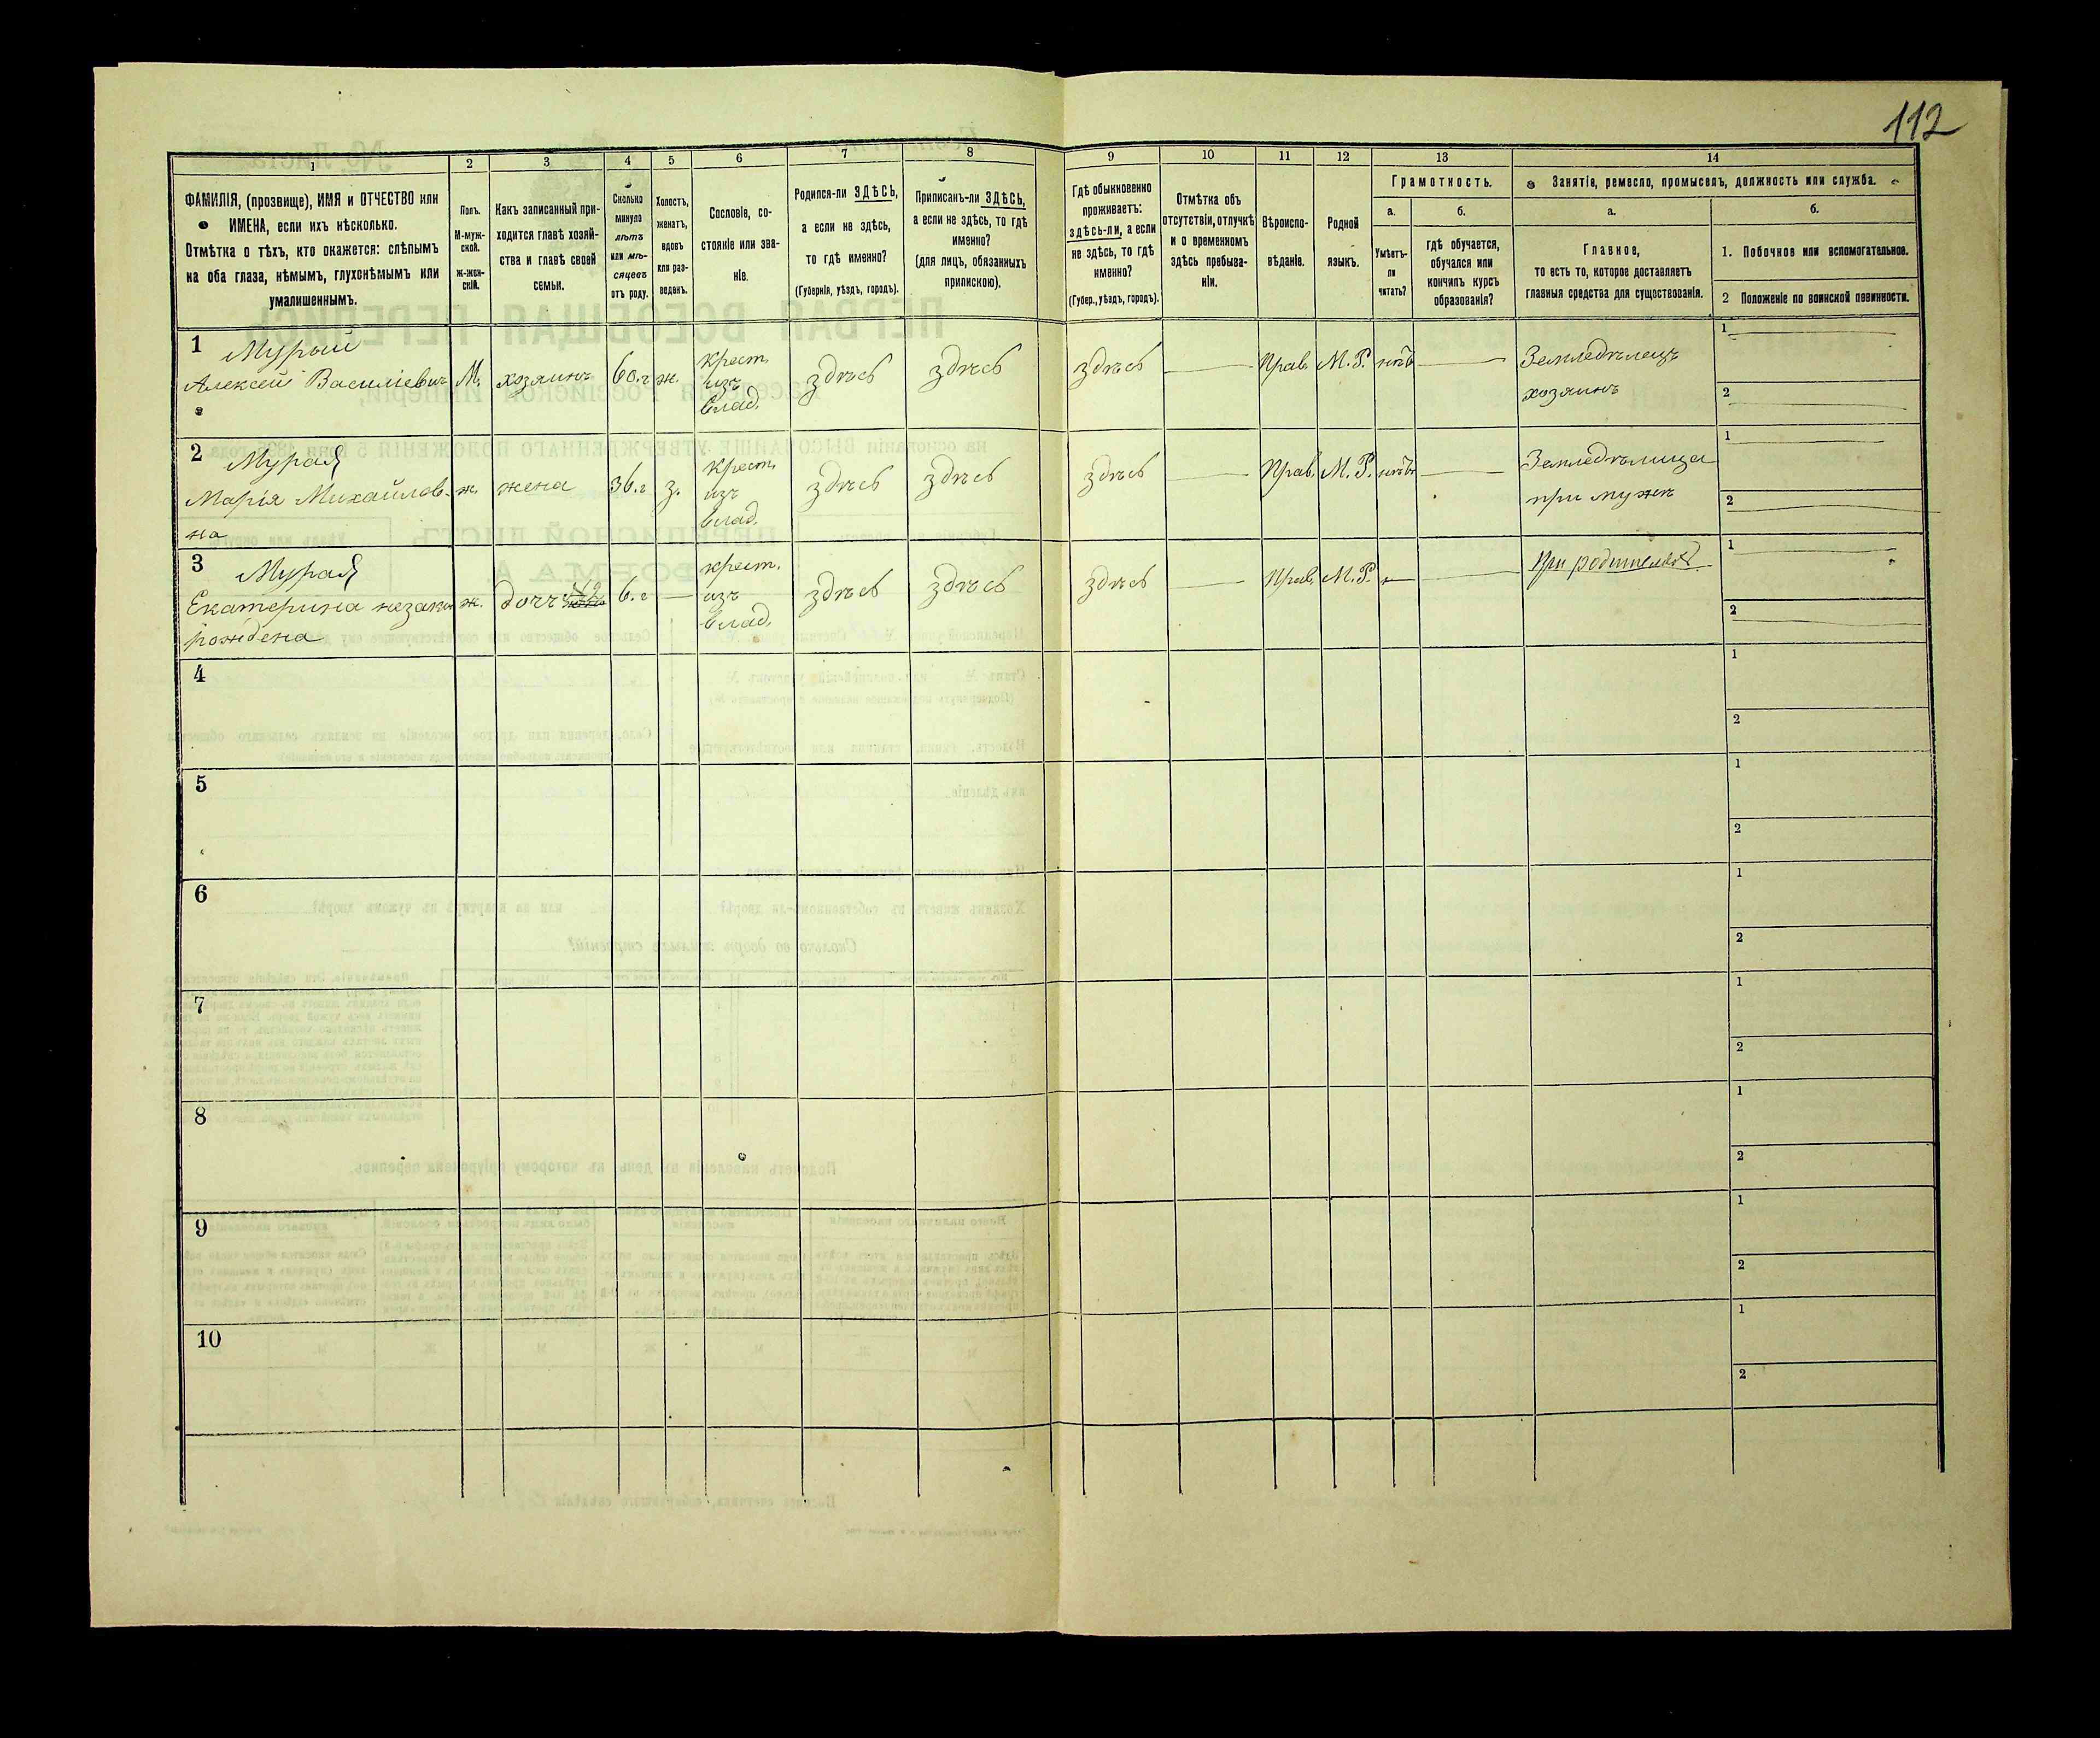 112
1
2
3
4
5
6
7
8
9
10
11
12
13
14
ФАМИЛІЯ, (прозвище), ИМЯ и ОТЧЕСТВО или
ИМЕНА, если ихъ нѣсколько.
Отмѣтка о тѣхъ, кто окажется: слѣпымъ
на оба глаза, нѣмымъ, глухонѣмымъ или
умалишеннымъ.
Полъ.
М-муж-
ской.
ж-жен-
скій.
Какъ записанный при-
ходится главѣ хозяй-
ства и главѣ своей
семьи.
Сколько
минуло
лѣтъ
или мѣ-
сяцевъ
отъ роду.
Холостъ,
женатъ,
вдовъ
или раз-
веденъ.
Сословіе, со-
стояніе или зва-
ніе.
Родился-ли ЗДѢСЬ,
а если не здѣсь,
то гдѣ именно?
(Губернія, уѣздъ, городъ).
Приписанъ-ли ЗДѢСЬ,
а если не здѣсь, то гдѣ
именно?
(для лицъ, обязанныхъ
припиской).
Гдѣ обыкновенно
проживаетъ:
здѣсь-ли, а если
не здѣсь, то гдѣ
именно?
(Губер., уѣздъ, городъ).
Отмѣтка объ
отсутствіи, отлучкѣ
и о временномъ
здѣсь пребыва-
ніи.
Вѣроиспо-
вѣданіе.
Родной
языкъ.
Грамотность.
а.
Умѣетъ-
ли
читать?
б.
гдѣ обучается,
обучался или
кончилъ курсъ
образованія?
Занятіе, ремесло, промыселъ, должность или служба.
а.
Главное,
то есть то, которое доставляетъ
главныя средства для существованія.
б.
1. Побочное или вспомогательное.
2 Положеніе по воинской повинности.
1
Мурый
Алексей Василіевич
М.
хозяинъ
60.г
ж.
крест.
изъ
влад.
здѣсь
здѣсь
здѣсь
Прав.
М.Р.
нѣтъ
Земледѣлецъ
хозяинъ
1
2
2
Мурая
Марія Михайлов-
на
ж.
жена
36.г
з.
крест.
изъ
влад.
здѣсь
здѣсь
здѣсь
Прав.
М.Р.
нѣтъ
Земледѣлица
при мужѣ
1
2
3
Мурая
Екатерина незакон
рождена
ж.
доч
6.г
крест.
изъ
влад.
здѣсь
здѣсь
здѣсь
Прав.
М.Р.
При родителях
1
2
4
1
2
5
1
2
6
1
2
7
1
2
8
1
2
9
1
2
10
1
2